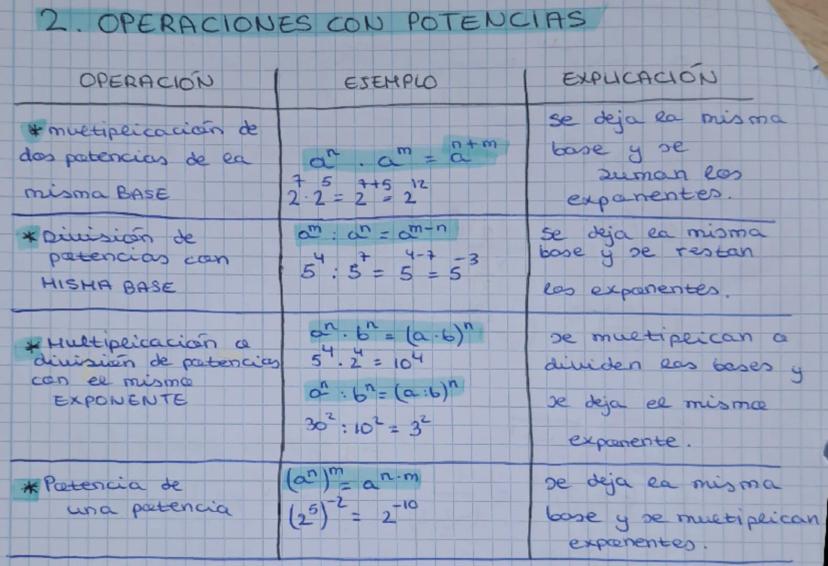 2. OPERACIONES CON POTENCIAS
OPERACIÓN EJEMPLO EXPLICACIÓN
* multiplicación de
dos potencias de la
misma BASE
aⁿ · aᵐ = aⁿ⁺ᵐ
2⁷ · 2⁵ = 2⁷⁺⁵ = 2¹²
se deja la misma
base y se
suman los
exponentes.
* División de
potencias con
MISMA BASE
aᵐ : aⁿ = aᵐ⁻ⁿ
5⁴ : 5⁷ = 5⁴⁻⁷ = 5⁻³
se deja la misma
base y se restan
los exponentes.
* Multiplicación o
división de potencias
con el mismo
EXPONENTE
aⁿ · bⁿ = (a · b)ⁿ
5⁴ · 2⁴ = 10⁴
aⁿ : bⁿ = (a : b)ⁿ
30² : 10² = 3²
se multiplican o
dividen las bases y
se deja el mismo
exponente.
* Potencia de
una potencia
(aⁿ)ᵐ = aⁿ·ᵐ
(2⁵)⁻² = 2⁻¹⁰
se deja la misma
base y se multiplican
exponentes.